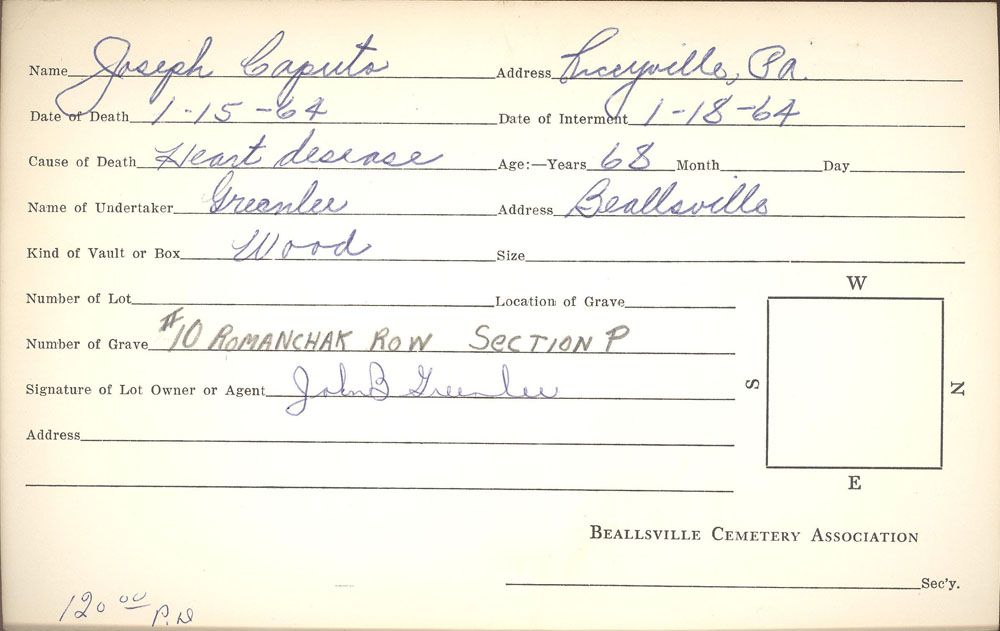 Name Joseph Caputo Address Luceyville, Pa.
Date of Death 1-15-64 Date of Interment 1-18-64
Cause of Death Heart desease Age:—Years 68 Month Day
Name of Undertaker Greenlee Address Beallsville
Kind of Vault or Box Wood Size
Number of Lot Location of Grave
Number of Grave #10 ROMANCHAK ROW SECTION P
Signature of Lot Owner or Agent John B Greenlee
Address
W
S
N
E
BEALLSVILLE CEMETERY ASSOCIATION
Sec'y.
120 00 P.D